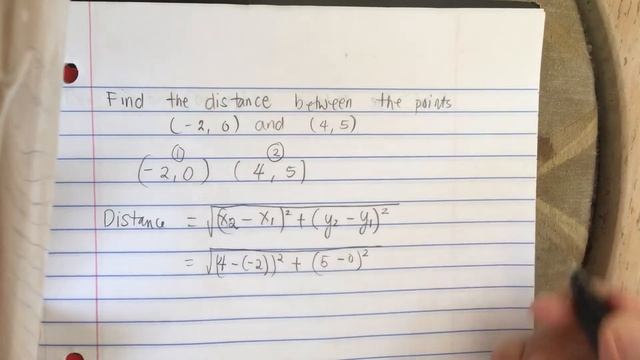 Find the distance between the points
(-2, 0) and (4, 5)
① ②
(-2, 0) (4, 5)
Distance = √(x₂ - x₁)² + (y₂ - y₁)²
= √(4 - (-2))² + (5 - 0)²